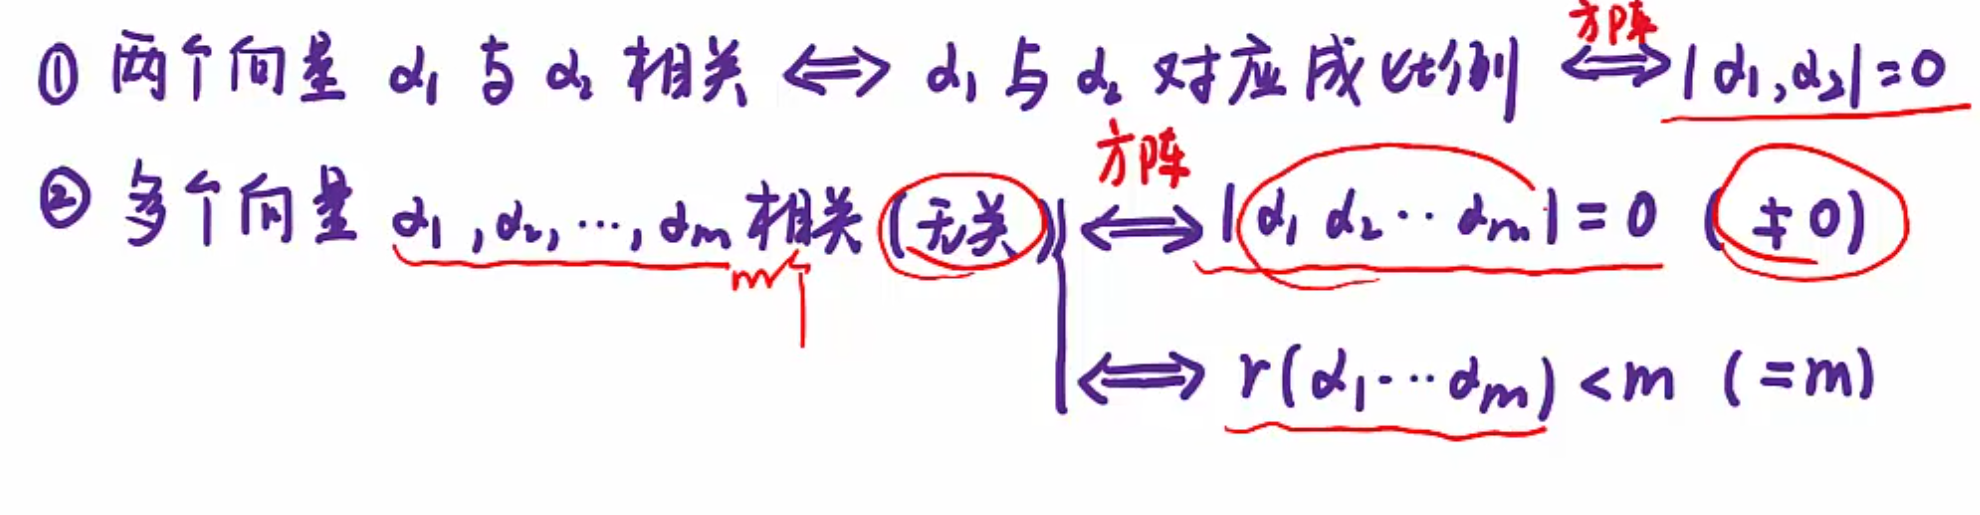 方阵
① 两个向量 α₁ 与 α₂ 相关 ⟺ α₁ 与 α₂ 对应成比例 ⟺ |α₁,α₂|=0
方阵
② 多个向量 α₁,α₂,…,αₘ 相关 (无关) ⟺ |α₁ α₂ ‥ αₘ|=0 (≠0)
m个
⟺ r(α₁…αₘ)<m (=m)